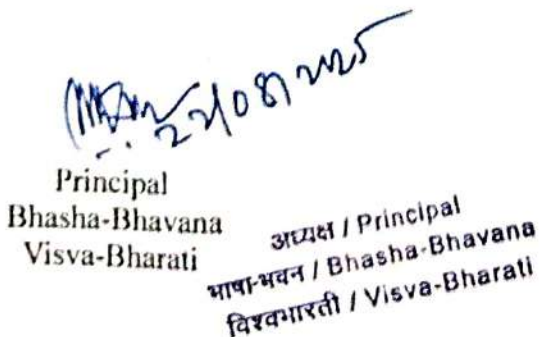 Principal
Bhasha-Bhavana
Visva-Bharati
अध्यक्ष / Principal
भाषा-भवन / Bhasha-Bhavana
विश्वभारती / Visva-Bharati